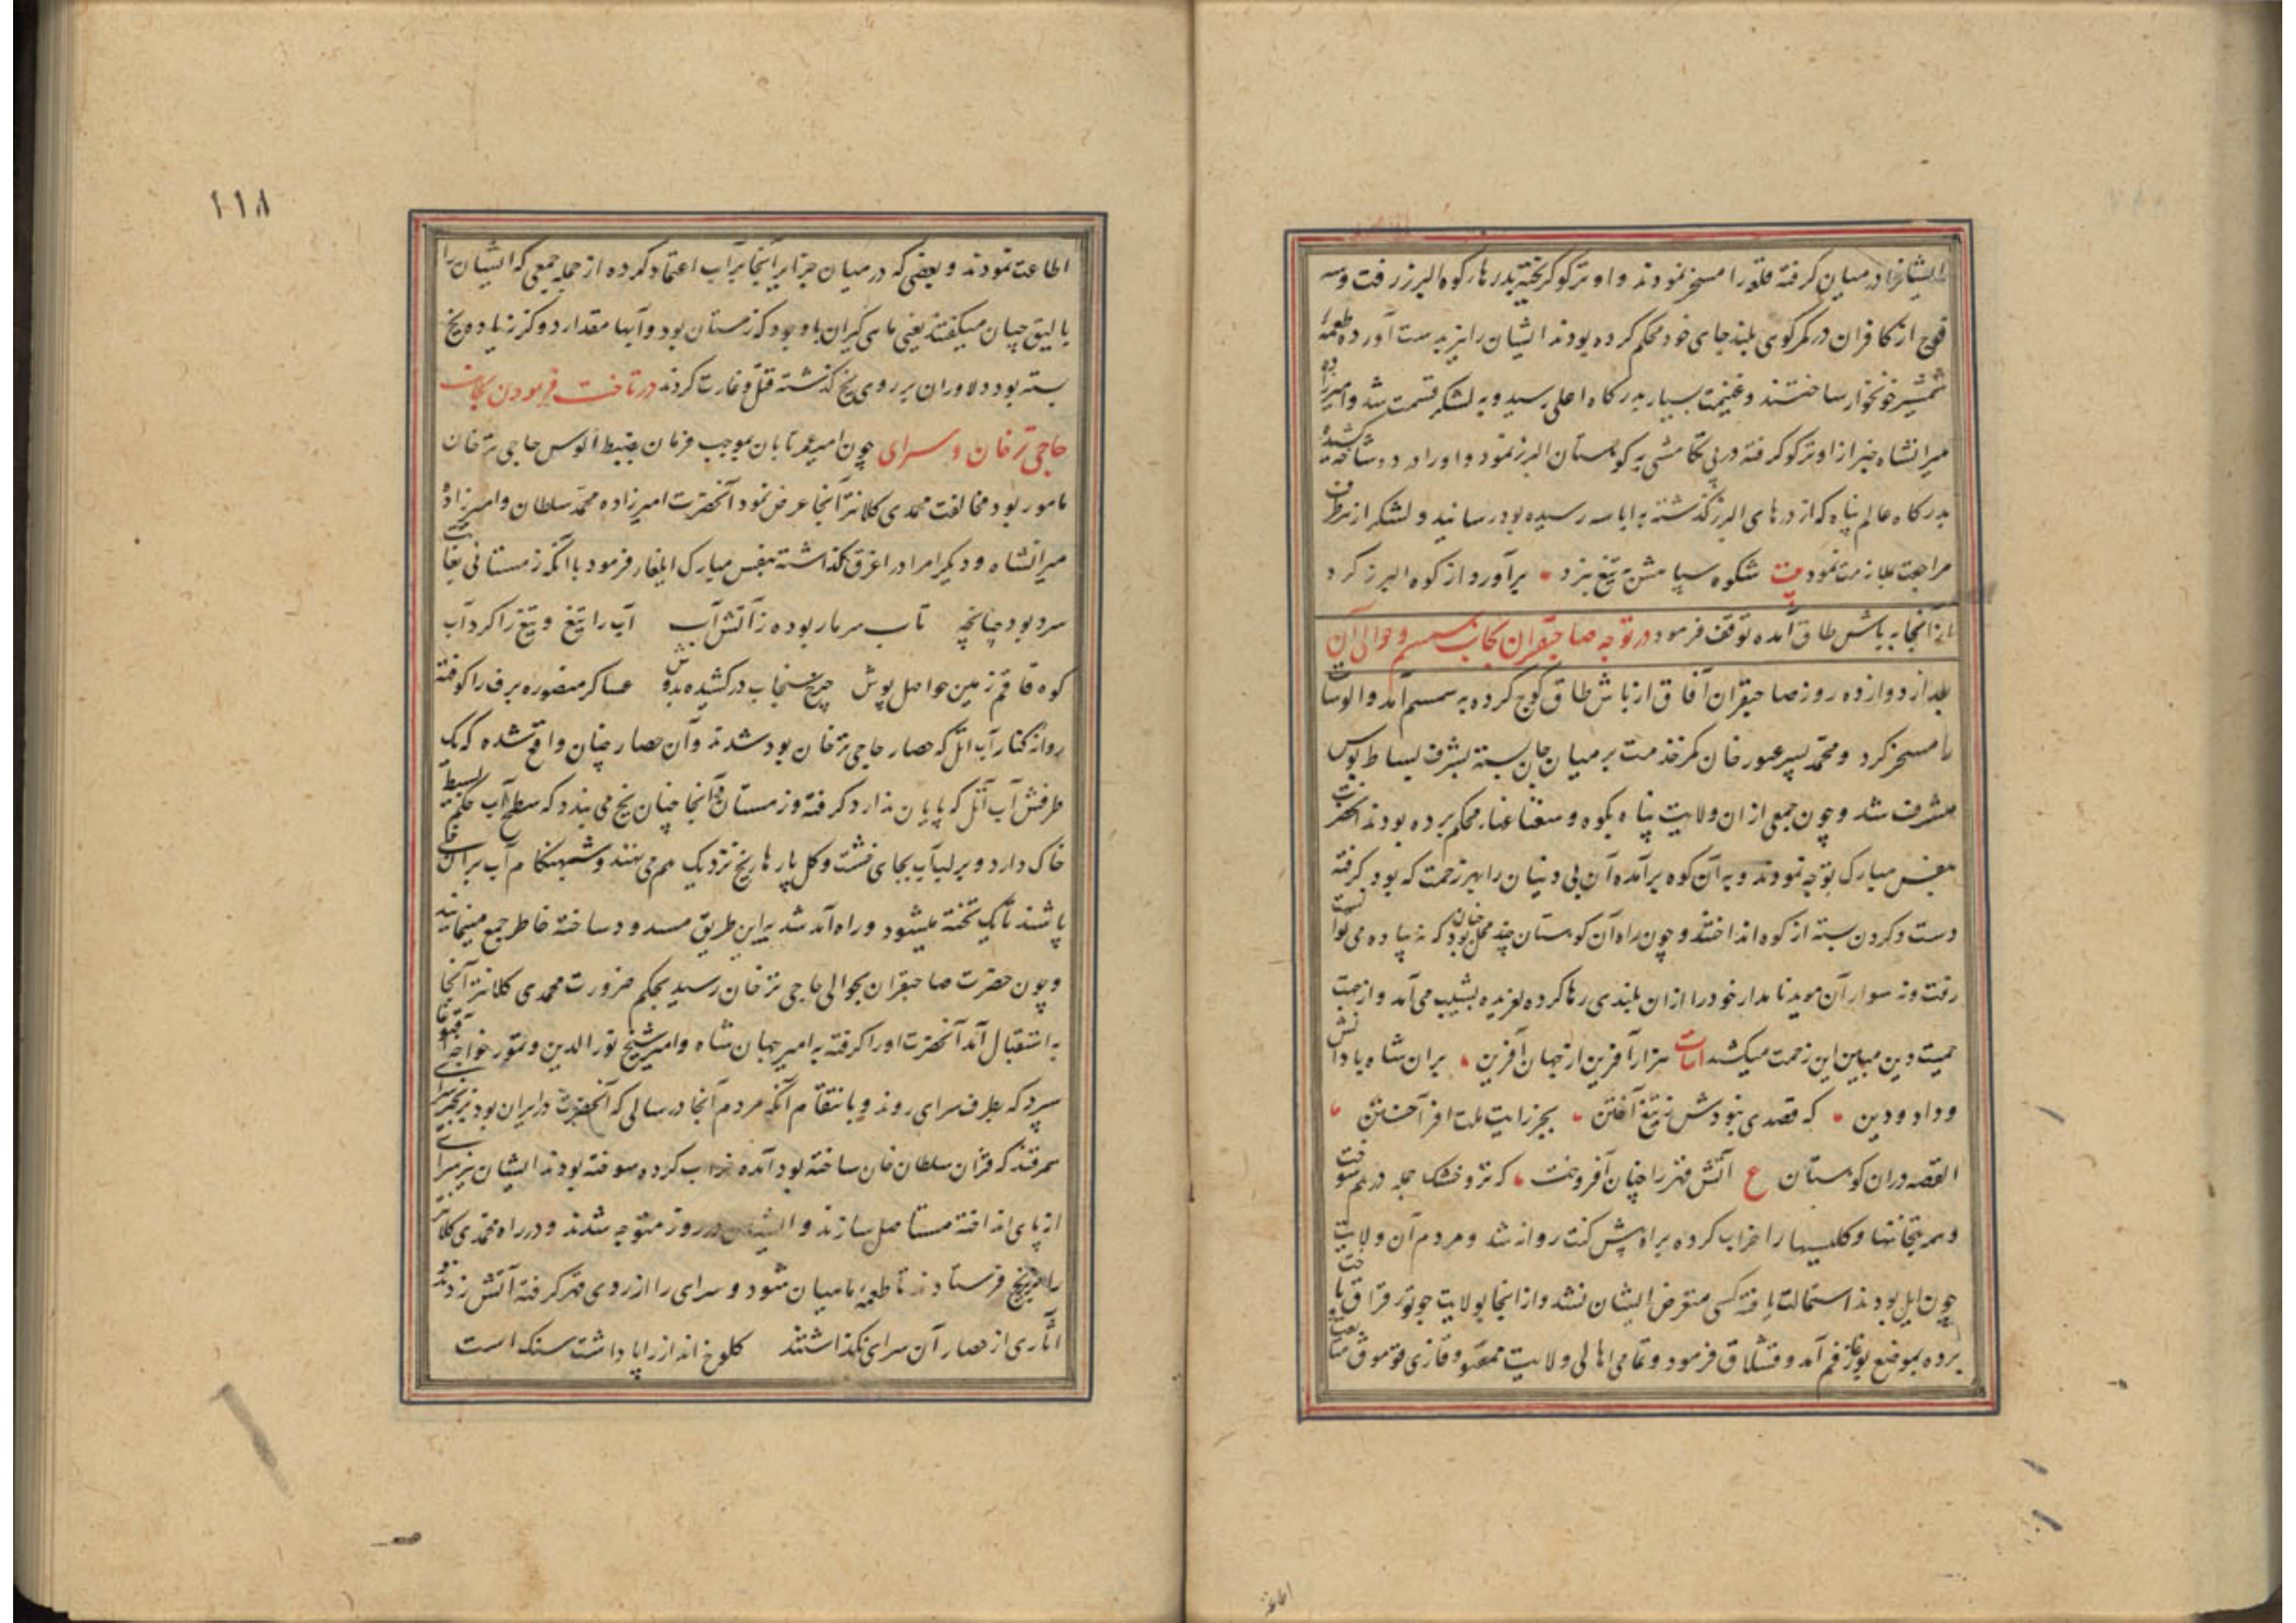 ایشانرا در میان گرفته قلعه را مسخر نمودند و اوترکو گریخته بدرهای کوه البرز رفت و سه
فوج از کافران در کمر کوی بلند جای خود محکم کرده بودند ایشان را نیز بدست آورده طعمهٔ
شمشیر خونخوار ساختند و غنیمت بسیار بدرگاه اعلی رسید و به لشکر قسمت شد و امیرزاده
میرانشاه خبر از اوترکو گرفته در پی تکامشی به کوهستان البرز نمود و او را در دوشاخه کشیده
بدرگاه عالم پناه که از درهای البرز گذشته به اباسه رسیده بود رسانید و لشکر از هر طرف
مراجعت بملازمت نمود بیت شکوه سپاهش به تیغ نبرد برآورد از کوه البرز گرد
از آنجا به باش طاق آمده توقف فرمود در توجه صاحبقران بجانب سمسم و حوالی آن
بعد از دوازده روز صاحبقران آفاق از باش طاق کوچ کرده به سمسم آمد و الوسات
را مسخر کرد و محمد پسر غیور خان کمر خدمت بر میان جان بسته بشرف بساط بوس
مشرف شد و چون جمعی از ان ولایت پناه بکوه و محکم برده بودند آنحضرت
بنفس مبارک توجه نمودند و به آن کوه برآمده آن بی دینان را بهر زحمت که بود گرفته
دست و گردن بسته از کوه انداختند و چون راه آن کوهستان چند محل چنان بود که نه پیاده می توانست
رفت و نه سوار آن موید نامدار خود را از ان بلندی رها کرده لغزیده بشیب می آمد و از جهت
حمیت دین مبین این زحمت میکشد ابیات هزار آفرین از جهان آفرین بران شاه با دانش
و داد و دین که قصدی نبودش ز تیغ آختن بجز رایت ملت افراختن
القصه دران کوهستان ع آتش قهر را چنان افروخت که تر و خشک جمله در هم سوخت
و هم بتخانها و کلیسیها را خراب کرده براه پیش کنت روانه شد و مردم آن ولایت
چون ایل بودند استمالت یافته کسی متعرض ایشان نشد و از انجا بولایت جوتور قزاق تاخت
برده بموضع بوغاز قم آمد و قشلاق فرمود و تمامی اهالی ولایت ممقتو و قازی قوموق متابعت
اطاعت
۱۱۸
اطاعت نمودند و بعضی که در میان جزایر آنجا بر آب اعتماد کرده از جمله جمعی که ایشان را
بالیق چیان میگفتند یعنی ماهی گیران باوجود که زمستان بود و آبها مقدار دو گز زیاده یخ
بسته بود دلاوران بر روی یخ گذشته قتل و غارت کردند در تاخت فرمودن بجانب
حاجی ترخان و سرای چون امیر عمر تابان بموجب فرمان بضبط الوس حاجی ترخان
مامور بود مخالفت محمدی کلانتر آنجا عرض نمود آنحضرت امیرزاده محمد سلطان و امیرزاده
میرانشاه و دیگر امرا در اغرق گذاشته بنفس مبارک ایلغار فرمود با آنکه زمستانی بغایت
سرد بود چنانچه تاب سرما ربوده ز آتش آب آب را تیغ و تیغ را کرد آب
کوه قاقم زمین حواصل پوش چرخ سنجاب در کشیده بدوش عساکر منصوره برف را کوفته
روانه کنار آب اتل که حصار حاجی ترخان بود شدند و آن حصار چنان واقع شده که یک
طرفش آب اتل که پایان ندارد گرفته و زمستان در آنجا چنان یخ می بندد که سطح آب حکم بسیط
خاک دارد و بر لب آب بجای خشت و گل پارهای یخ نزدیک هم می نهند و شبهنگام آب بر ان می
پاشند تا یک تخته میشود و راه آمد شد براین طریق مسدود ساخته خاطر جمع مینمایند
و چون حضرت صاحبقران بحوالی حاجی ترخان رسید بحکم ضرورت محمدی کلانتر آنجا
به استقبال آمد آنحضرت او را گرفته به امیر جهان شاه و امیر شیخ نور الدین و تمور خواجه آقبوغا
سپرد که بطرف سرای روند و بانتقام آنکه مردم آنجا در سالی که آنحضرت در ایران بود زنجیر سرای
سمرقند که قزان سلطان خان ساخته بود آمده خراب کرده سوخته بودند ایشان نیز سرای
از پای انداخته مستاصل سازند و ایشان در روز متوجه شدند و در راه محمدی کلانتر
را بزیر یخ فرستادند تا طعمهٔ ماهیان شود و سرای را از روی قهر گرفته آتش زدند و
آثاری از حصار آن سرای نگذاشتند کلوخ انداز را پاداشت سنگ است